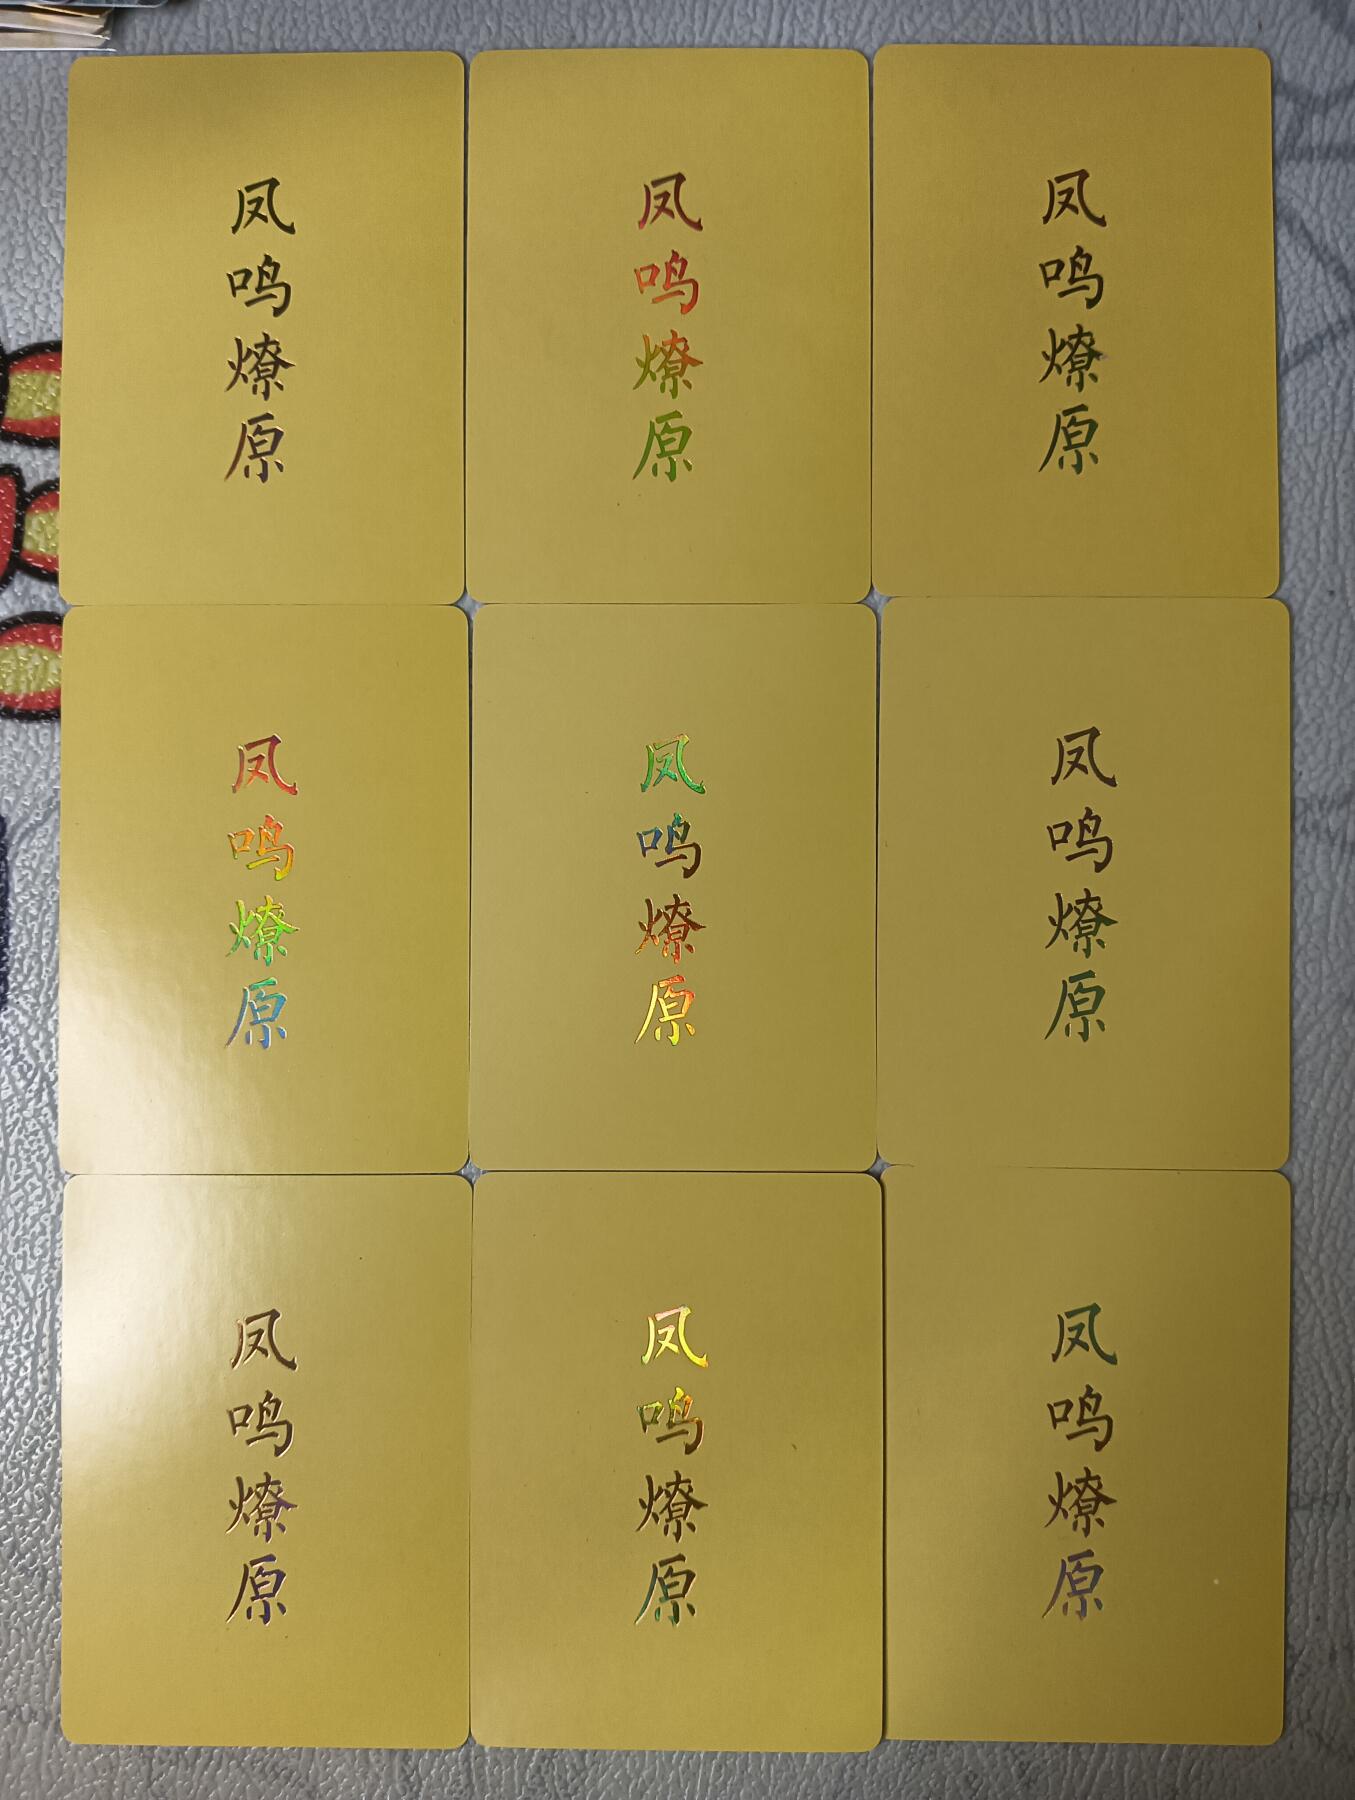 凤鸣燎原
凤鸣燎原
凤鸣燎原
凤鸣燎原
凤鸣燎原
凤鸣燎原
凤鸣燎原
凤鸣燎原
凤鸣燎原